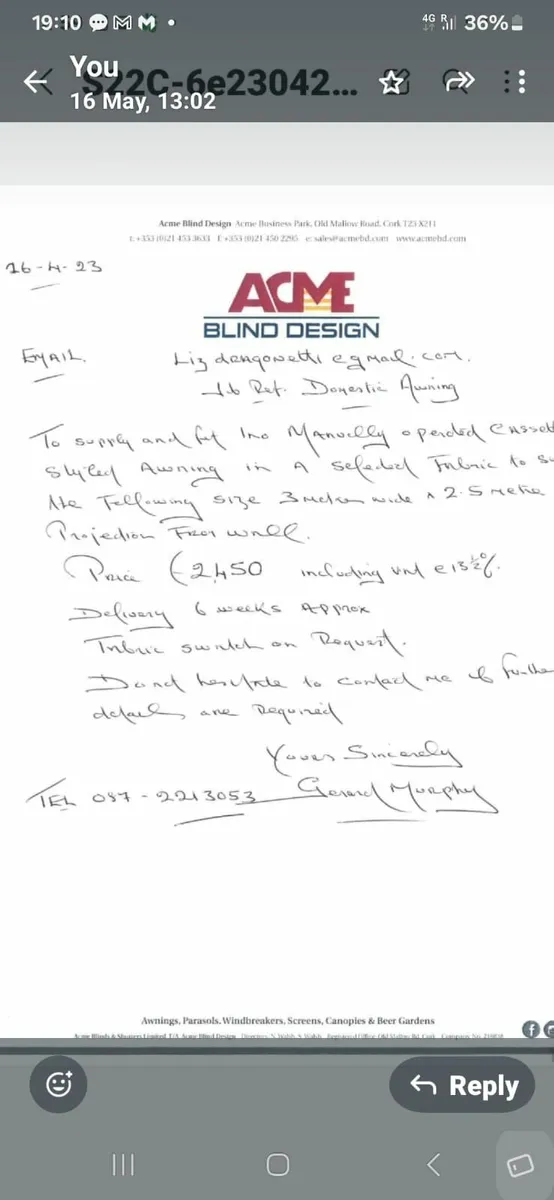 19:10
4G R 36%
You
S22C-6e23042...
16 May, 13:02
Acme Blind Design Acme Business Park, Old Mallow Road, Cork T23 X211
t: +353 (0)21 453 3633 f: +353 (0)21 450 2295 e: sales@acmebd.com www.acmebd.com
26-4-23
ACME
BLIND DESIGN
EMAIL. Liz @gmail.com.
Job Ref. Domestic Awning
To supply and fit Manually operded Cassett
Styled Awning in A selected Fabric to Su
the Following size 3 metres wide x 2.5 metre
Projection From wall.
Price €2,450 including vat @ 13½%.
Delivery 6 weeks Approx
Fabric swatch on Request.
Do not hesitate to contact me if furthe
details are Required
Yours Sincerely
TEL 087-2213053 Gerard Murphy
Awnings, Parasols, Windbreakers, Screens, Canopies & Beer Gardens
Acme Blinds & Shutters Limited T/A Acme Blind Design
Reply